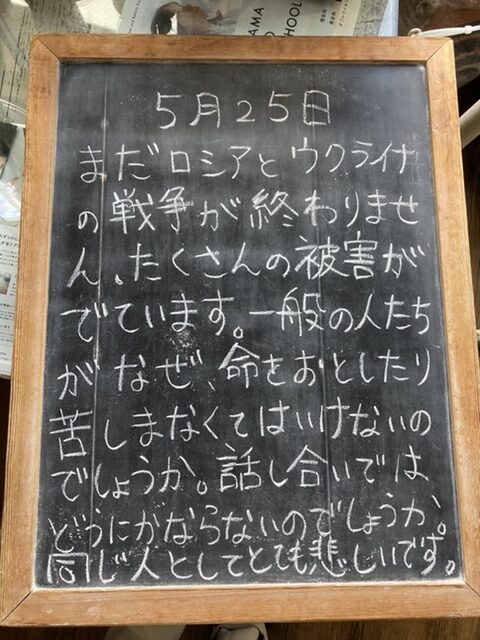 5月25日
まだロシアとウクライナ
の戦争が終わりませ
ん。たくさんの被害が
でています。一般の人たち
がなぜ、命をおとしたり
苦しまなくてはいけないの
でしょうか。話し合いでは
どうにかならないのでしょうか。
同じ人としてとても悲しいです。
AMA
CHOOL